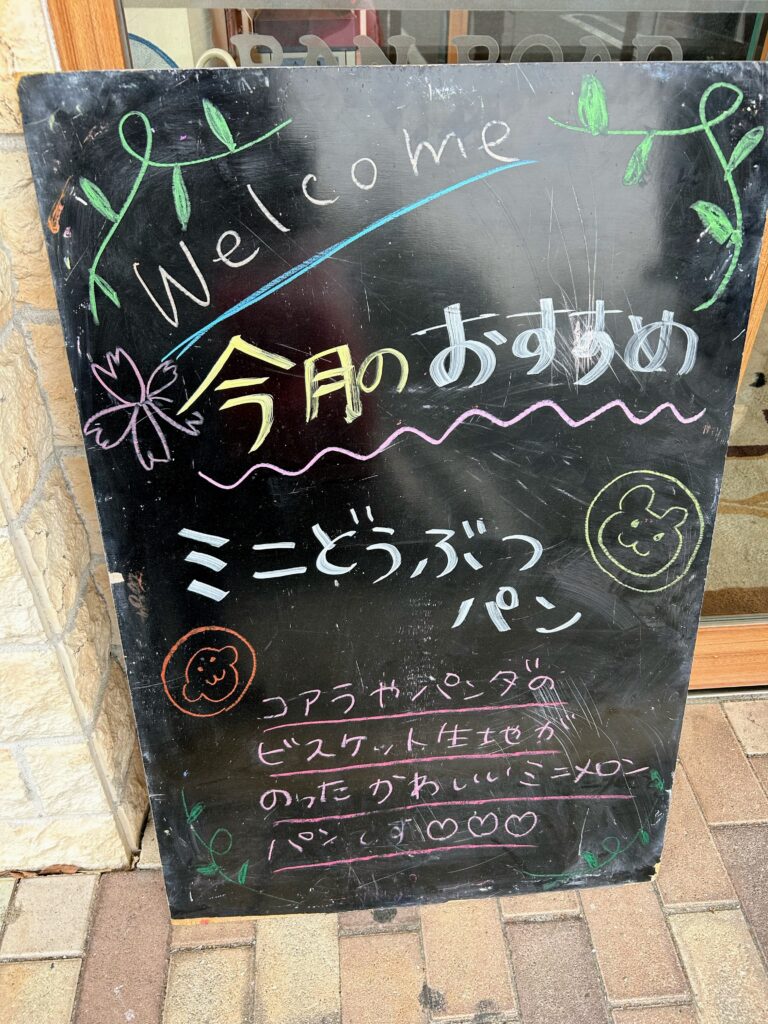 Welcome
今月のおすすめ
ミニどうぶつ
パン
コアラやパンダの
ビスケット生地が
のったかわいいミニメロン
パンです♡♡♡